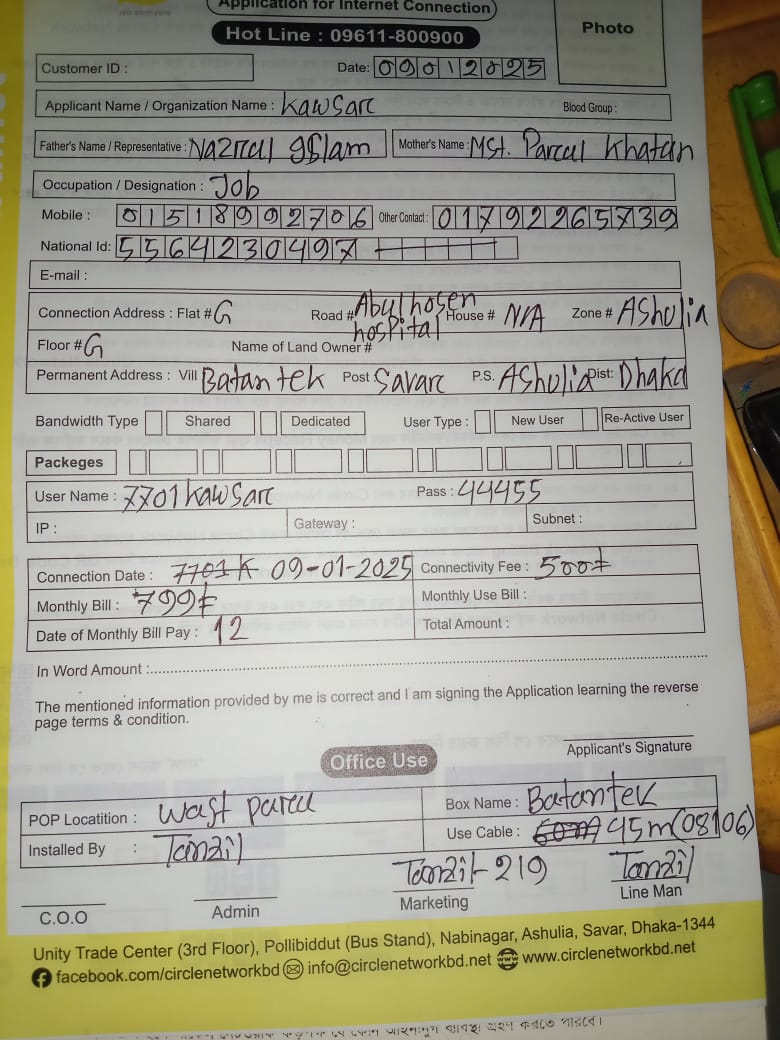 Application for Internet Connection
Hot Line : 09611-800900
Photo
Customer ID :
Date: 09012025
Applicant Name / Organization Name : Kawsarc Blood Group :
Father's Name / Representative : Nazrul Islam Mother's Name : Mst. Parcul Khatun
Occupation / Designation : Job
Mobile : 01518992706 Other Contact : 01792265739
National Id: 5564230497
E-mail :
Connection Address : Flat # G Road # Abulhosen hospital House # N/A Zone # Ashulia
Floor # G Name of Land Owner #
Permanent Address : Vill Batantek Post Savarc P.S. Ashulia Dist: Dhaka
Bandwidth Type Shared Dedicated User Type : New User Re-Active User
Packeges
User Name : 7701kawsarc Pass : 44455
IP : Gateway : Subnet :
Connection Date : 7701K 09-01-2025 Connectivity Fee : 500
Monthly Bill : 799 Monthly Use Bill :
Date of Monthly Bill Pay : 12 Total Amount :
In Word Amount :
The mentioned information provided by me is correct and I am signing the Application learning the reverse
page terms & condition.
Applicant's Signature
Office Use
POP Locatition : Wast Para Box Name : Batantek
Installed By : Tanzil Use Cable : 45m(08106)
Tanzil-219 Tanzil
C.O.O Admin Marketing Line Man
Unity Trade Center (3rd Floor), Pollibiddut (Bus Stand), Nabinagar, Ashulia, Savar, Dhaka-1344
facebook.com/circlenetworkbd info@circlenetworkbd.net www.circlenetworkbd.net